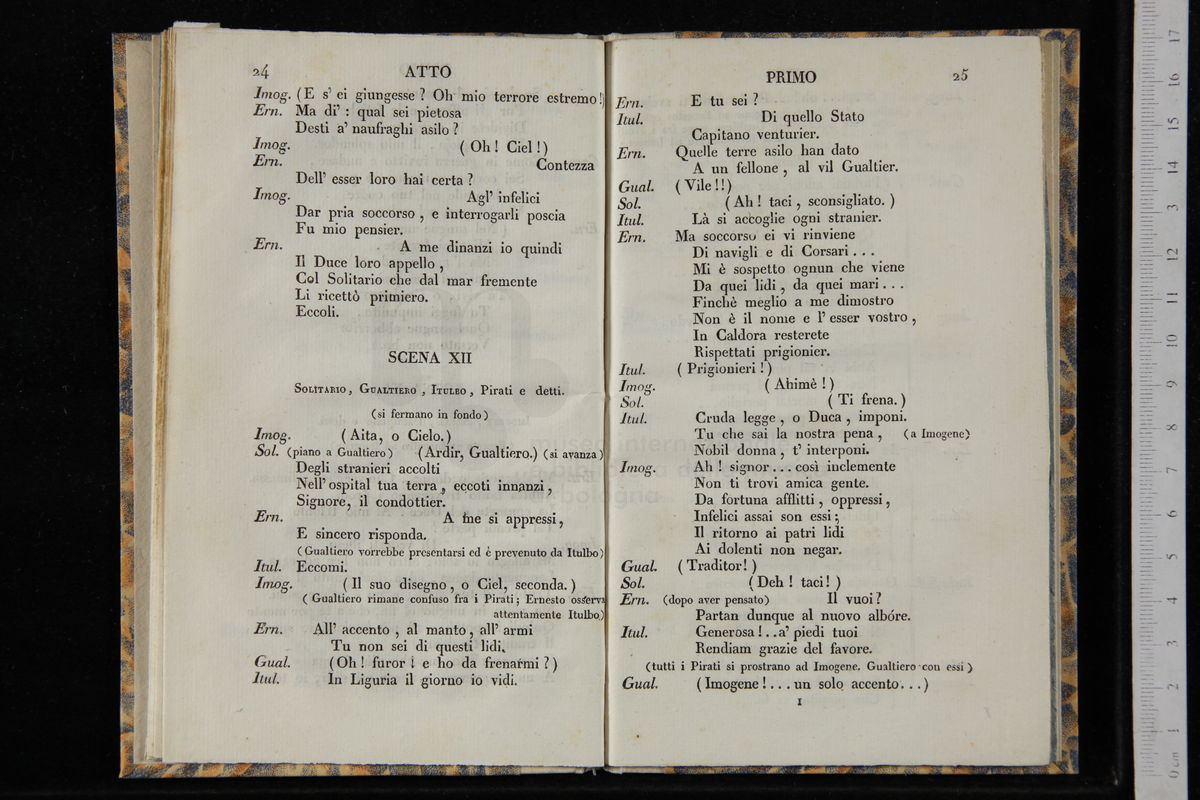 24 ATTO
Imog. (E s' ei giungesse ? Oh mio terrore estremo!)
Ern. Ma di' : qual sei pietosa
Desti a' naufraghi asilo ?
Imog. ( Oh ! Ciel !)
Ern. Contezza
Dell' esser loro hai certa ?
Imog. Agl' infelici
Dar pria soccorso , e interrogarli poscia
Fu mio pensier.
Ern. A me dinanzi io quindi
Il Duce loro appello ,
Col Solitario che dal mar fremente
Li ricettò primiero.
Eccoli.
SCENA XII
Solitario, Gualtiero , Itulbo, Pirati e detti.
(si fermano in fondo)
Imog. (Aita, o Cielo.)
Sol. (piano a Gualtiero) (Ardir, Gualtiero.) (si avanza)
Degli stranieri accolti
Nell' ospital tua terra , eccoti innanzi ,
Signore, il condottier.
Ern. A me si appressi ,
E sincero risponda.
(Gualtiero vorrebbe presentarsi ed è prevenuto da Itulbo)
Itul. Eccomi.
Imog. (Il suo disegno , o Ciel, seconda.)
( Gualtiero rimane confuso fra i Pirati ; Ernesto osserva
attentamente Itulbo)
Ern. All' accento , al manto , all' armi
Tu non sei di questi lidi.
Gual. (Oh ! furor ! e ho da frenarmi ?)
Itul. In Liguria il giorno io vidi.
PRIMO 25
Ern. E tu sei ?
Itul. Di quello Stato
Capitano venturier.
Ern. Quelle terre asilo han dato
A un fellone , al vil Gualtier.
Gual. (Vile!!)
Sol. (Ah ! taci , sconsigliato. )
Itul. Là si accoglie ogni stranier.
Ern. Ma soccorso ei vi rinviene
Di navigli e di Corsari . . .
Mi è sospetto ognun che viene
Da quei lidi , da quei mari . . .
Finchè meglio a me dimostro
Non è il nome e l' esser vostro ,
In Caldora resterete
Rispettati prigionier.
Itul. ( Prigionieri !)
Imog. ( Ahimè !)
Sol. ( Ti frena. )
Itul. Cruda legge , o Duca , imponi.
Tu che sai la nostra pena , (a Imogene)
Nobil donna , t' interponi.
Imog. Ah ! signor . . . così inclemente
Non ti trovi amica gente.
Da fortuna afflitti , oppressi ,
Infelici assai son essi ;
Il ritorno ai patri lidi
Ai dolenti non negar.
Gual. ( Traditor! )
Sol. (Deh ! taci! )
Ern. (dopo aver pensato) Il vuoi?
Partan dunque al nuovo albóre.
Itul. Generosa ! . . a' piedi tuoi
Rendiam grazie del favore.
(tutti i Pirati si prostrano ad Imogene. Gualtiero con essi )
Gual. ( Imogene ! . . . un solo accento . . . )
I
museo inter
bologna
17
16
15
14
13
12
11
10
9
8
7
6
5
4
3
2
1
0 cm